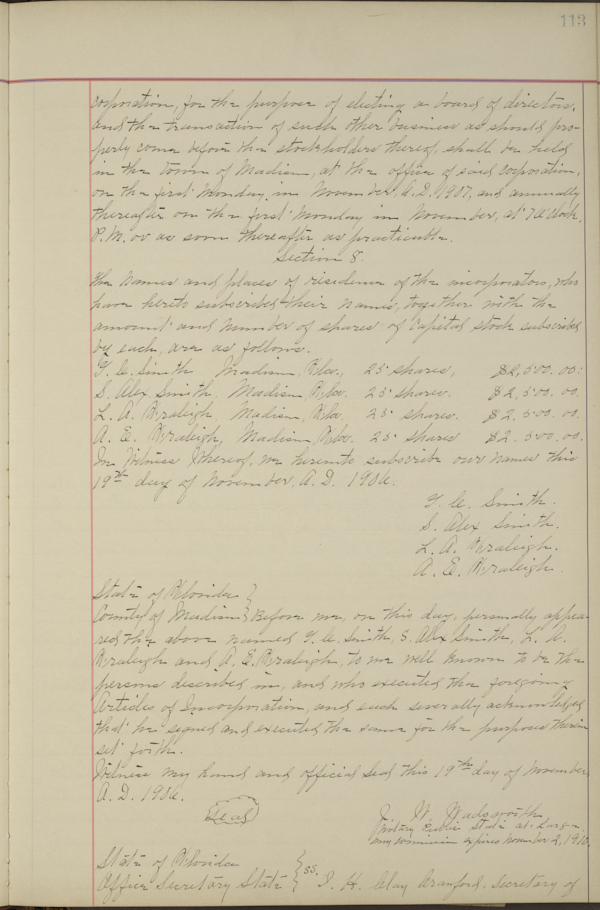 113
corporation, for the purpose of electing a board of directors,
and the transaction of such other business as should pro-
perly come before the stockholders thereof, shall be held
in the town of Madison, at the office of said corporation,
on the first Monday, in November, A.D. 1907, and annually
thereafter on the first Monday in November, at 7 O'clock,
P.M. or as soon thereafter as practicable.
Section 8.
The names and places of residence of the incorporators, who
have hereto subscribed their names, together with the
amount and number of shares of Capital stock subscribed
by each, are as follows.
Smith Madison, Fla., 25 shares, $2,500.00.
S. Alex Smith, Madison Fla. 25 shares. $2,500.00.
L. A. Fraleigh, Madison, Fla. 25 shares. $2,500.00.
A. E. Fraleigh, Madison, Fla. 25 shares $2,500.00.
In Witness Whereof, we hereunto subscribe our names this
19th day of November, A.D. 1906.
Smith.
S. Alex Smith.
L. A. Fraleigh.
A. E. Fraleigh.
State of Florida }
County of Madison } Before me, on this day, personally appea-
red the above named Smith, S. Alex Smith, L. A.
Fraleigh and A. E. Fraleigh, to me well known to be the
persons described in, and who executed the foregoing
Articles of Incorporation, and each severally acknowledged
that he signed and executed the same for the purposes therein
set forth.
Witness my hand and official seal this 19th day of November
A.D. 1906.
Seal
Wadsworth
Notary Public State at Large.
my commission expires November 2, 1910.
State of Florida }
Office Secretary State } ss. I, H. Clay Crawford, Secretary of